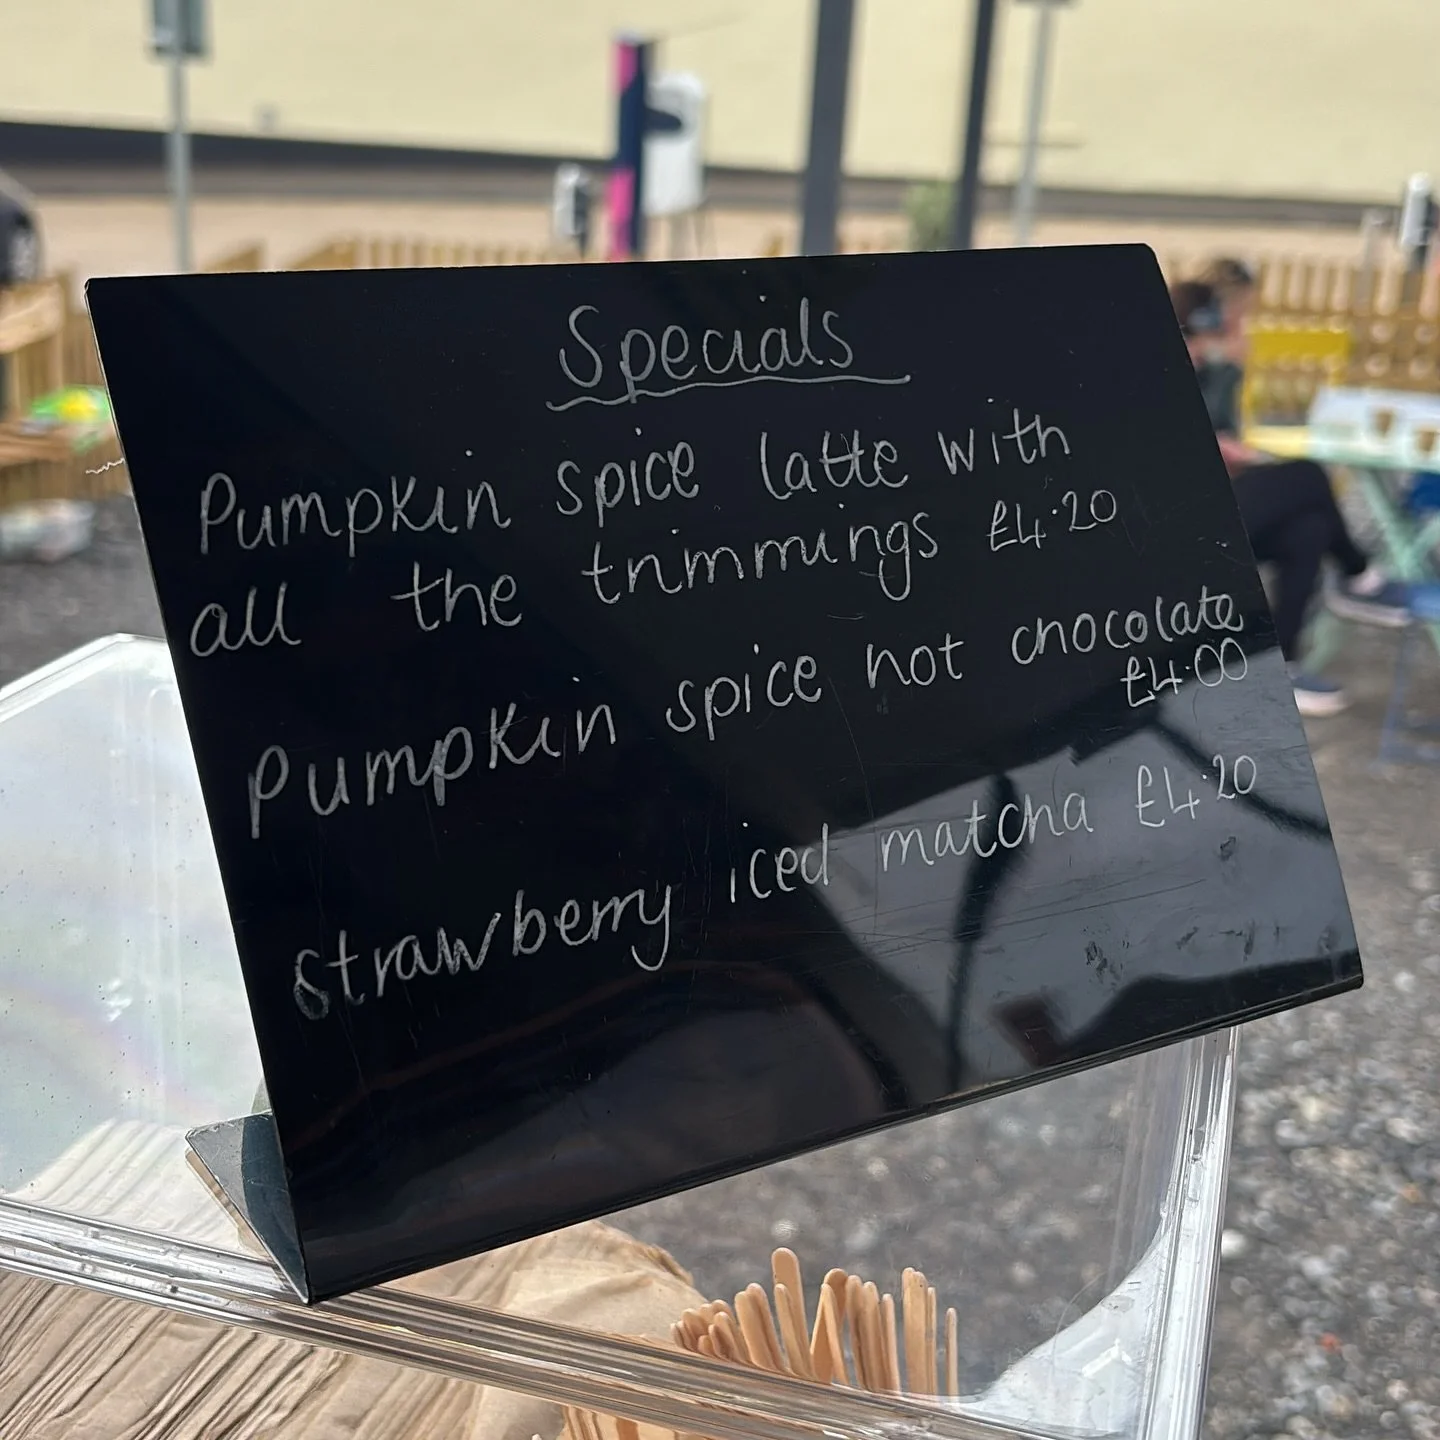 Specials
Pumpkin spice latte with
all the trimmings £4.20
Pumpkin spice hot chocolate
£4.00
Strawberry iced matcha £4.20